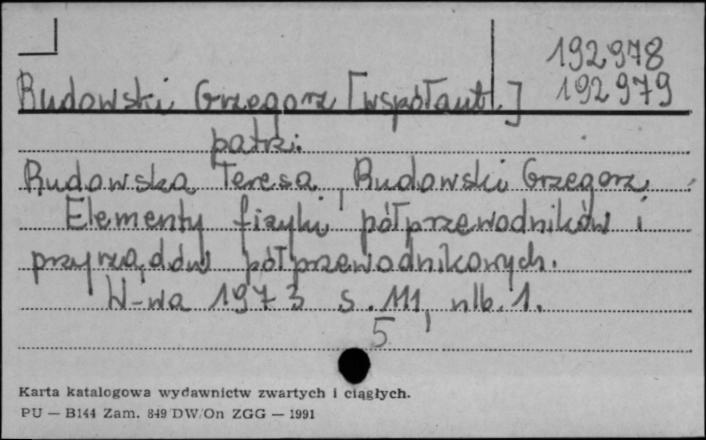 192978
192979
Rudowski Grzegorz [współaut.]
patrz:
Rudowska Teresa, Rudowski Grzegorz
Elementy fizyki półprzewodników i
przyrządów półprzewodnikowych.
W-wa 1973 s. 111, nlb. 1.
5
Karta katalogowa wydawnictw zwartych i ciągłych.
PU — B144 Zam. 849 DW/On ZGG — 1991